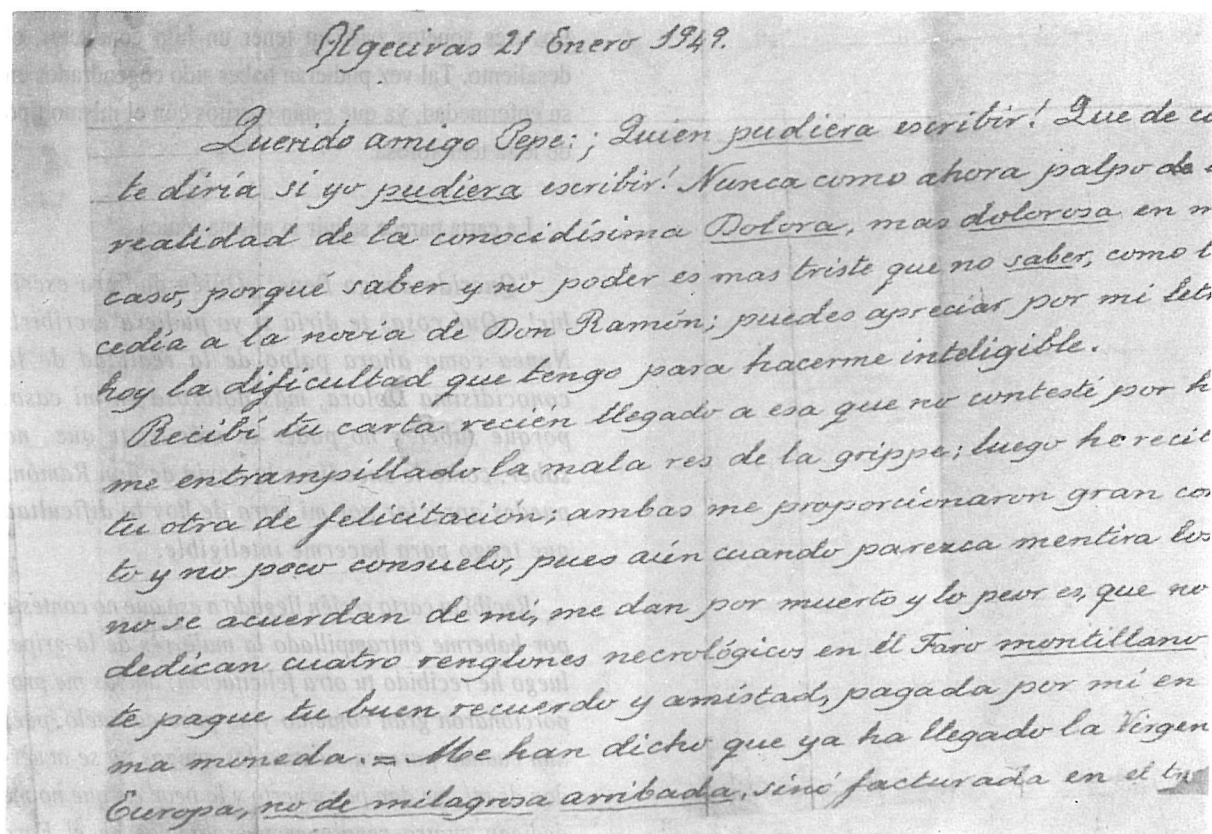 Algeciras 21 Enero 1949.
Querido amigo Pepe: ¡Quien pudiera escribir! Que de co
te diría si yo pudiera escribir! Nunca como ahora palpo de
realidad de la conocidísima Dolora, mas dolorosa en m
caso, porqué saber y no poder es mas triste que no saber, como l
cedía a la novia de Don Ramón; puedes apreciar por mi letr
hoy la dificultad que tengo para hacerme inteligible.
Recibí tu carta recién llegado a esa que no contesté por h
me entrampillado la mala res de la grippe; luego he recib
tu otra de felicitación; ambas me proporcionaron gran con
to y no poco consuelo, pues aún cuando parezca mentira los
no se acuerdan de mí, me dan por muerto y lo peor es, que no
dedican cuatro renglones necrológicos en él Faro montillano
te pague tu buen recuerdo y amistad, pagada por mí en
ma moneda. = Me han dicho que ya ha llegado la Virgen
Europa, no de milagrosa arribada, sinó facturada en el